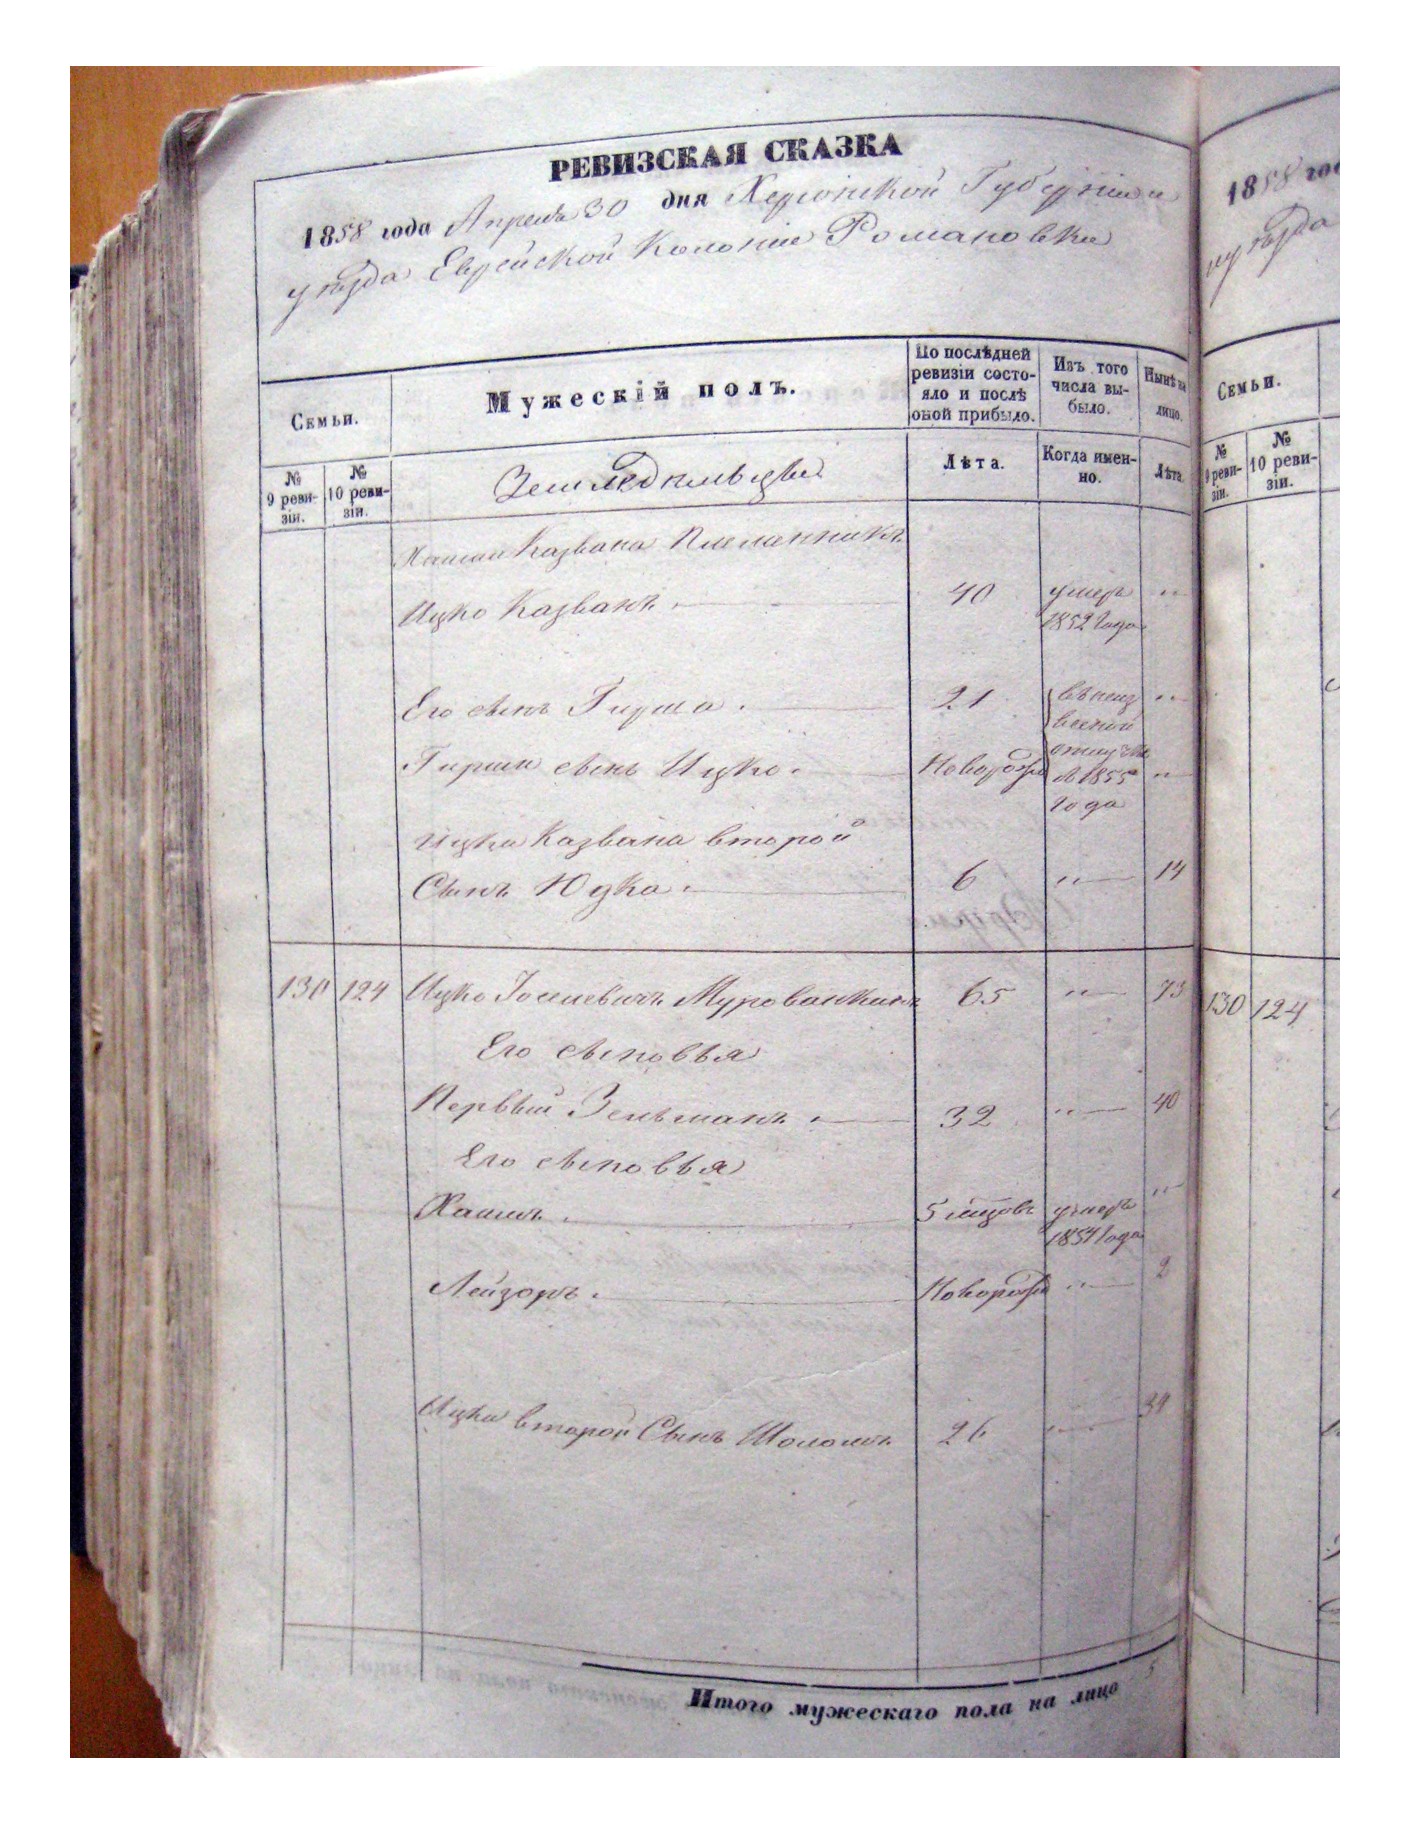 РЕВИЗСКАЯ СКАЗКА
1858 года Апреля 30 дня Херсонской Губерніи и
уѣзда Еврейской Колоніи Романовки
Семьи.
Мужескій полъ.
По послѣдней ревизіи состояло и послѣ оной прибыло.
Изъ того числа выбыло.
Нынѣ на лицо.
№ 9 ревизіи.
№ 10 ревизіи.
Земледѣльцы
Лѣта.
Когда именно.
Лѣта.
Казвана Племянникъ
Ицко Казванъ. 40 умеръ 1852 года "
Его сынъ Гирша. 21 въ неиз "
вестной
Гирши сынъ Ицко. Новорож отлучке "
съ 1855
года
Ицки Казвана второй
Сынъ Юдка. 6 " 14
130 124 Ицко Іоселевичъ Мурованкинъ 65 " 73
Его сыновья
Первый Зельманъ. 32 " 40
Его сыновья
Хаимъ. 5 мцовъ умеръ 1854 года "
Лейзоръ. Новорож " 2
Ицки второй Сынъ Шоломъ 26 " 34
5
Итого мужескаго пола на лицо
1858 год
уѣзда
Семьи.
№ 9 ревизіи.
№ 10 ревизіи.
130 124